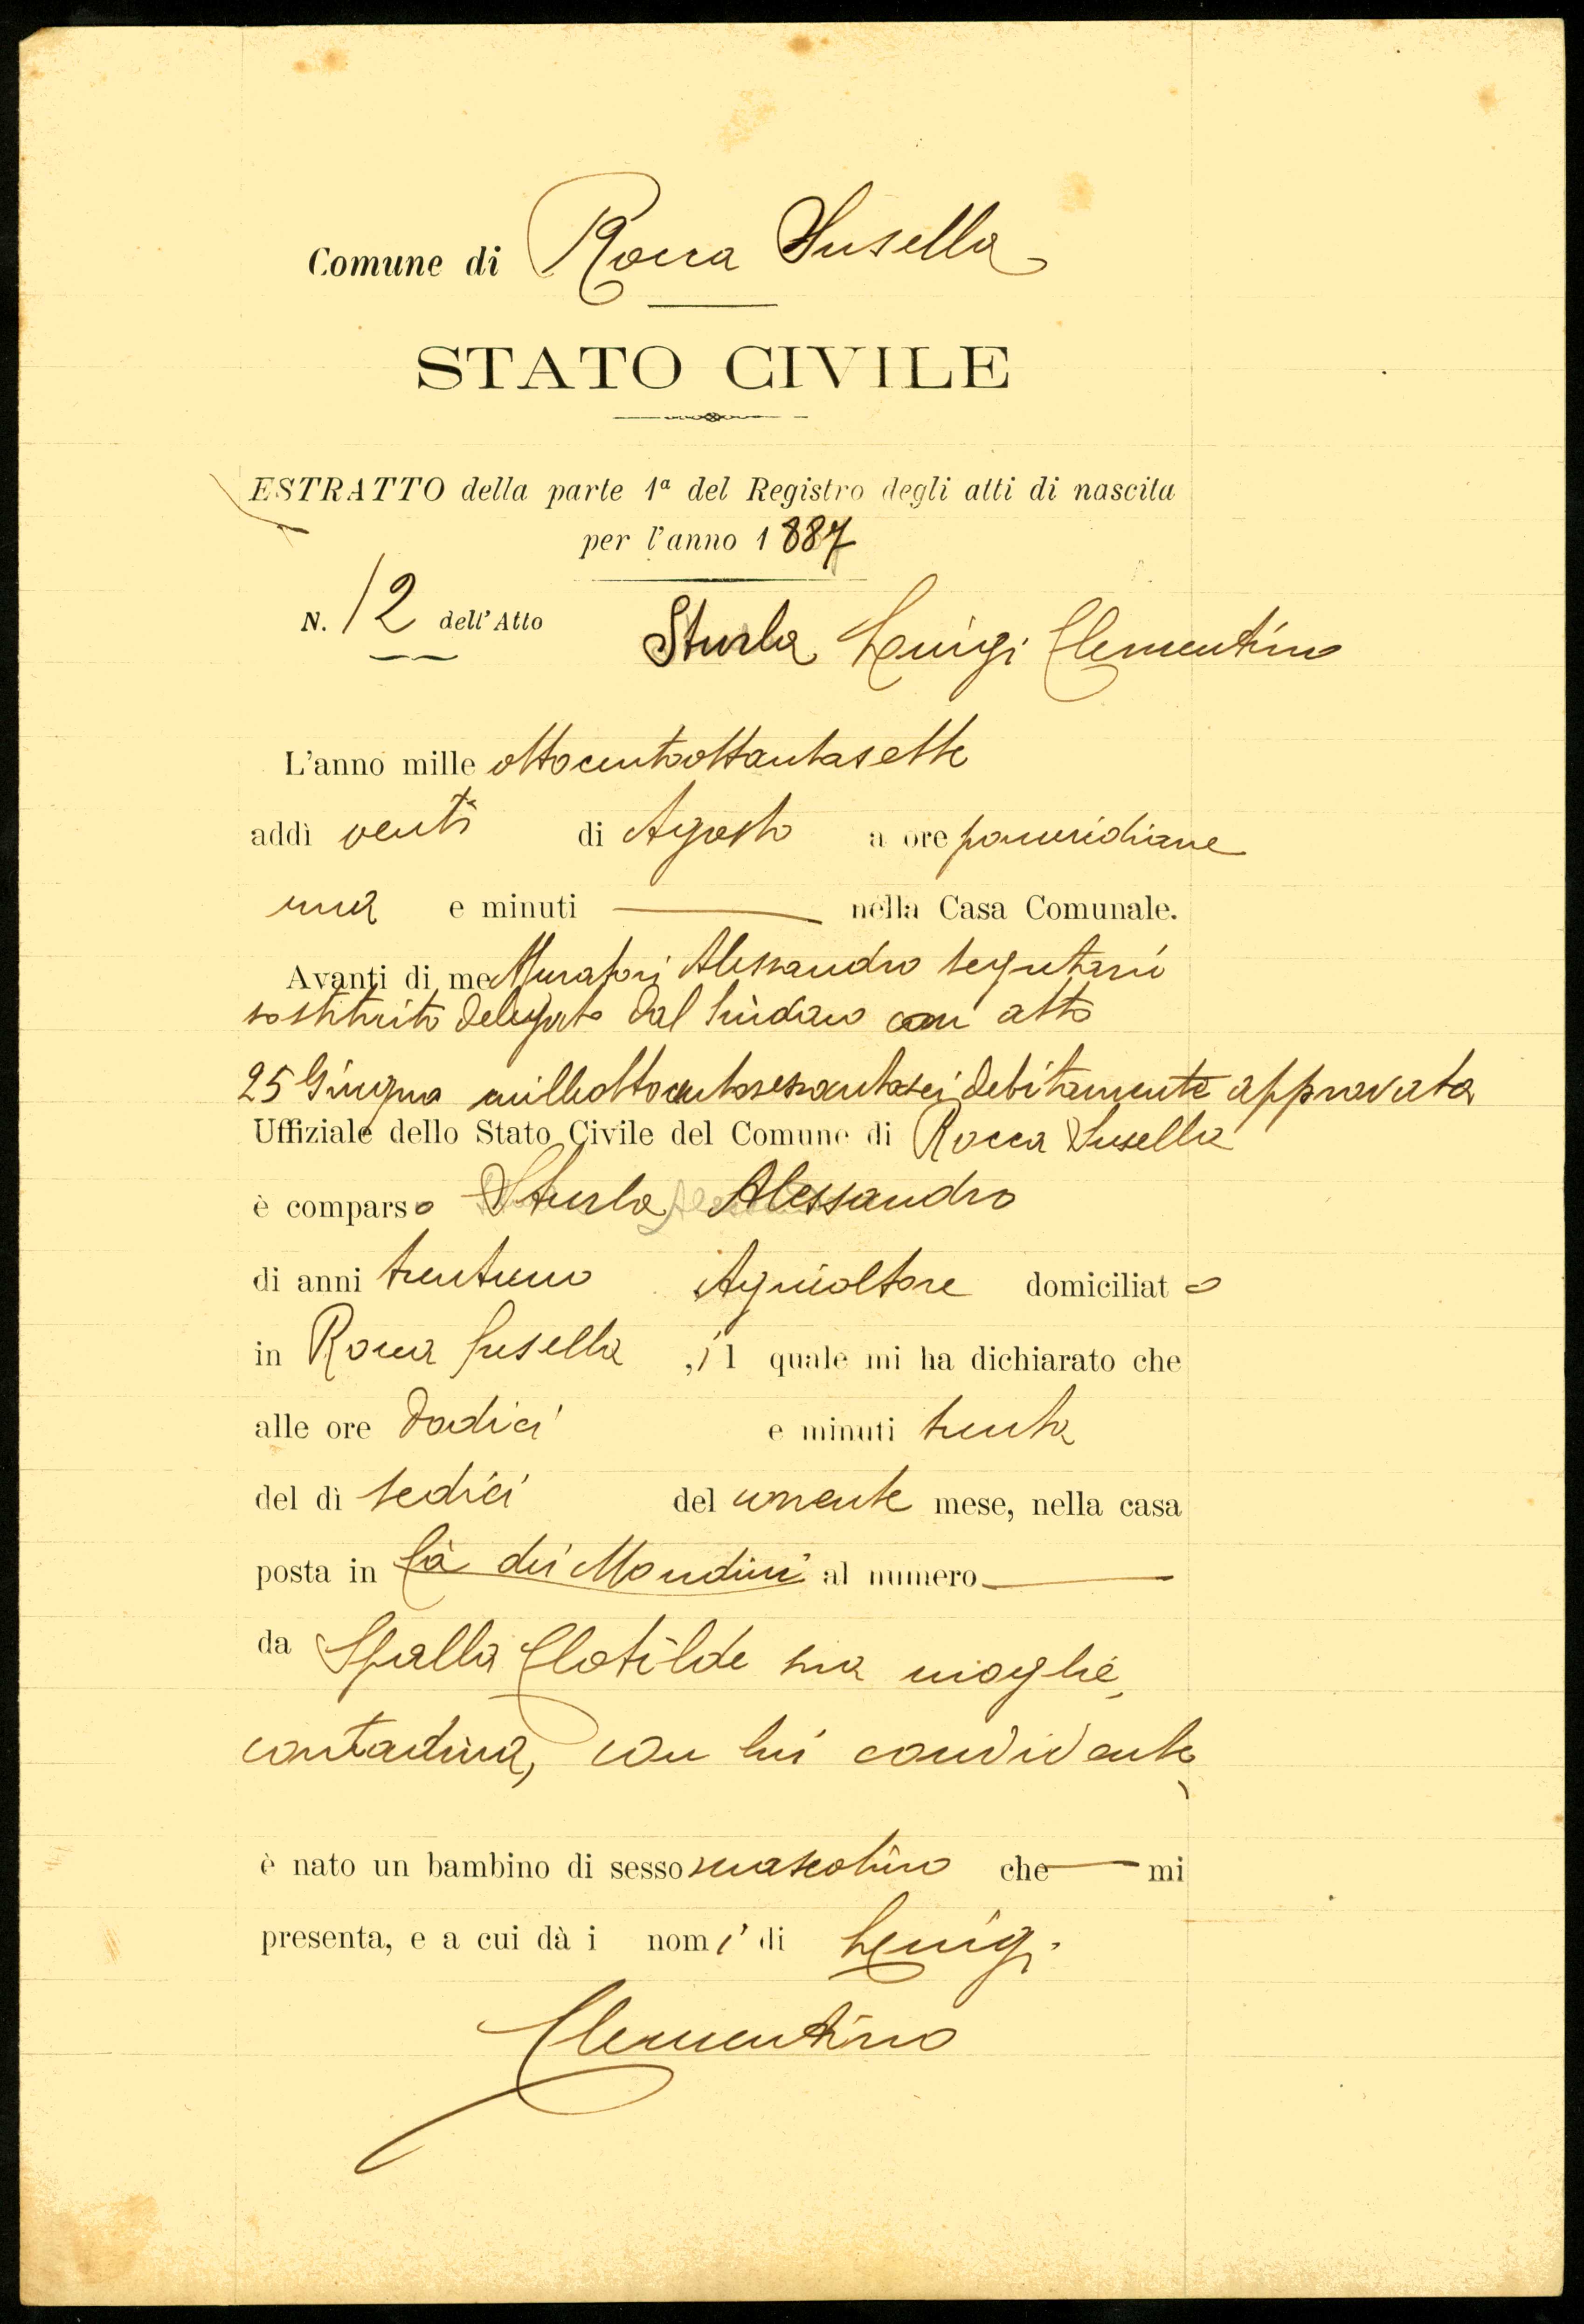 Comune di Rocca Susella
STATO CIVILE
ESTRATTO della parte 1ª del Registro degli atti di nascita
per l'anno 1887
N. 12 dell'Atto Sturla Luigi Clementino
L'anno mille ottocentoottantasette
addì venti di Agosto a ore pomeridiane
una e minuti — nella Casa Comunale.
Avanti di me Muratori Alessandro segretario
sostituito delegato dal Sindaco con atto
25 Giugno milleottocentosessantasei debitamente approvata
Uffiziale dello Stato Civile del Comune di Rocca Susella
è comparso Sturla Alessandro
di anni trentuno Agricoltore domiciliato
in Rocca Susella, il quale mi ha dichiarato che
alle ore dodici e minuti trenta
del dì sedici del corrente mese, nella casa
posta in Cà dei Mondini al numero —
da Spalla Clotilde sua moglie,
contadina, con lui convivente,
è nato un bambino di sesso mascolino che — mi
presenta, e a cui dà i nomi di Luigi
Clementino